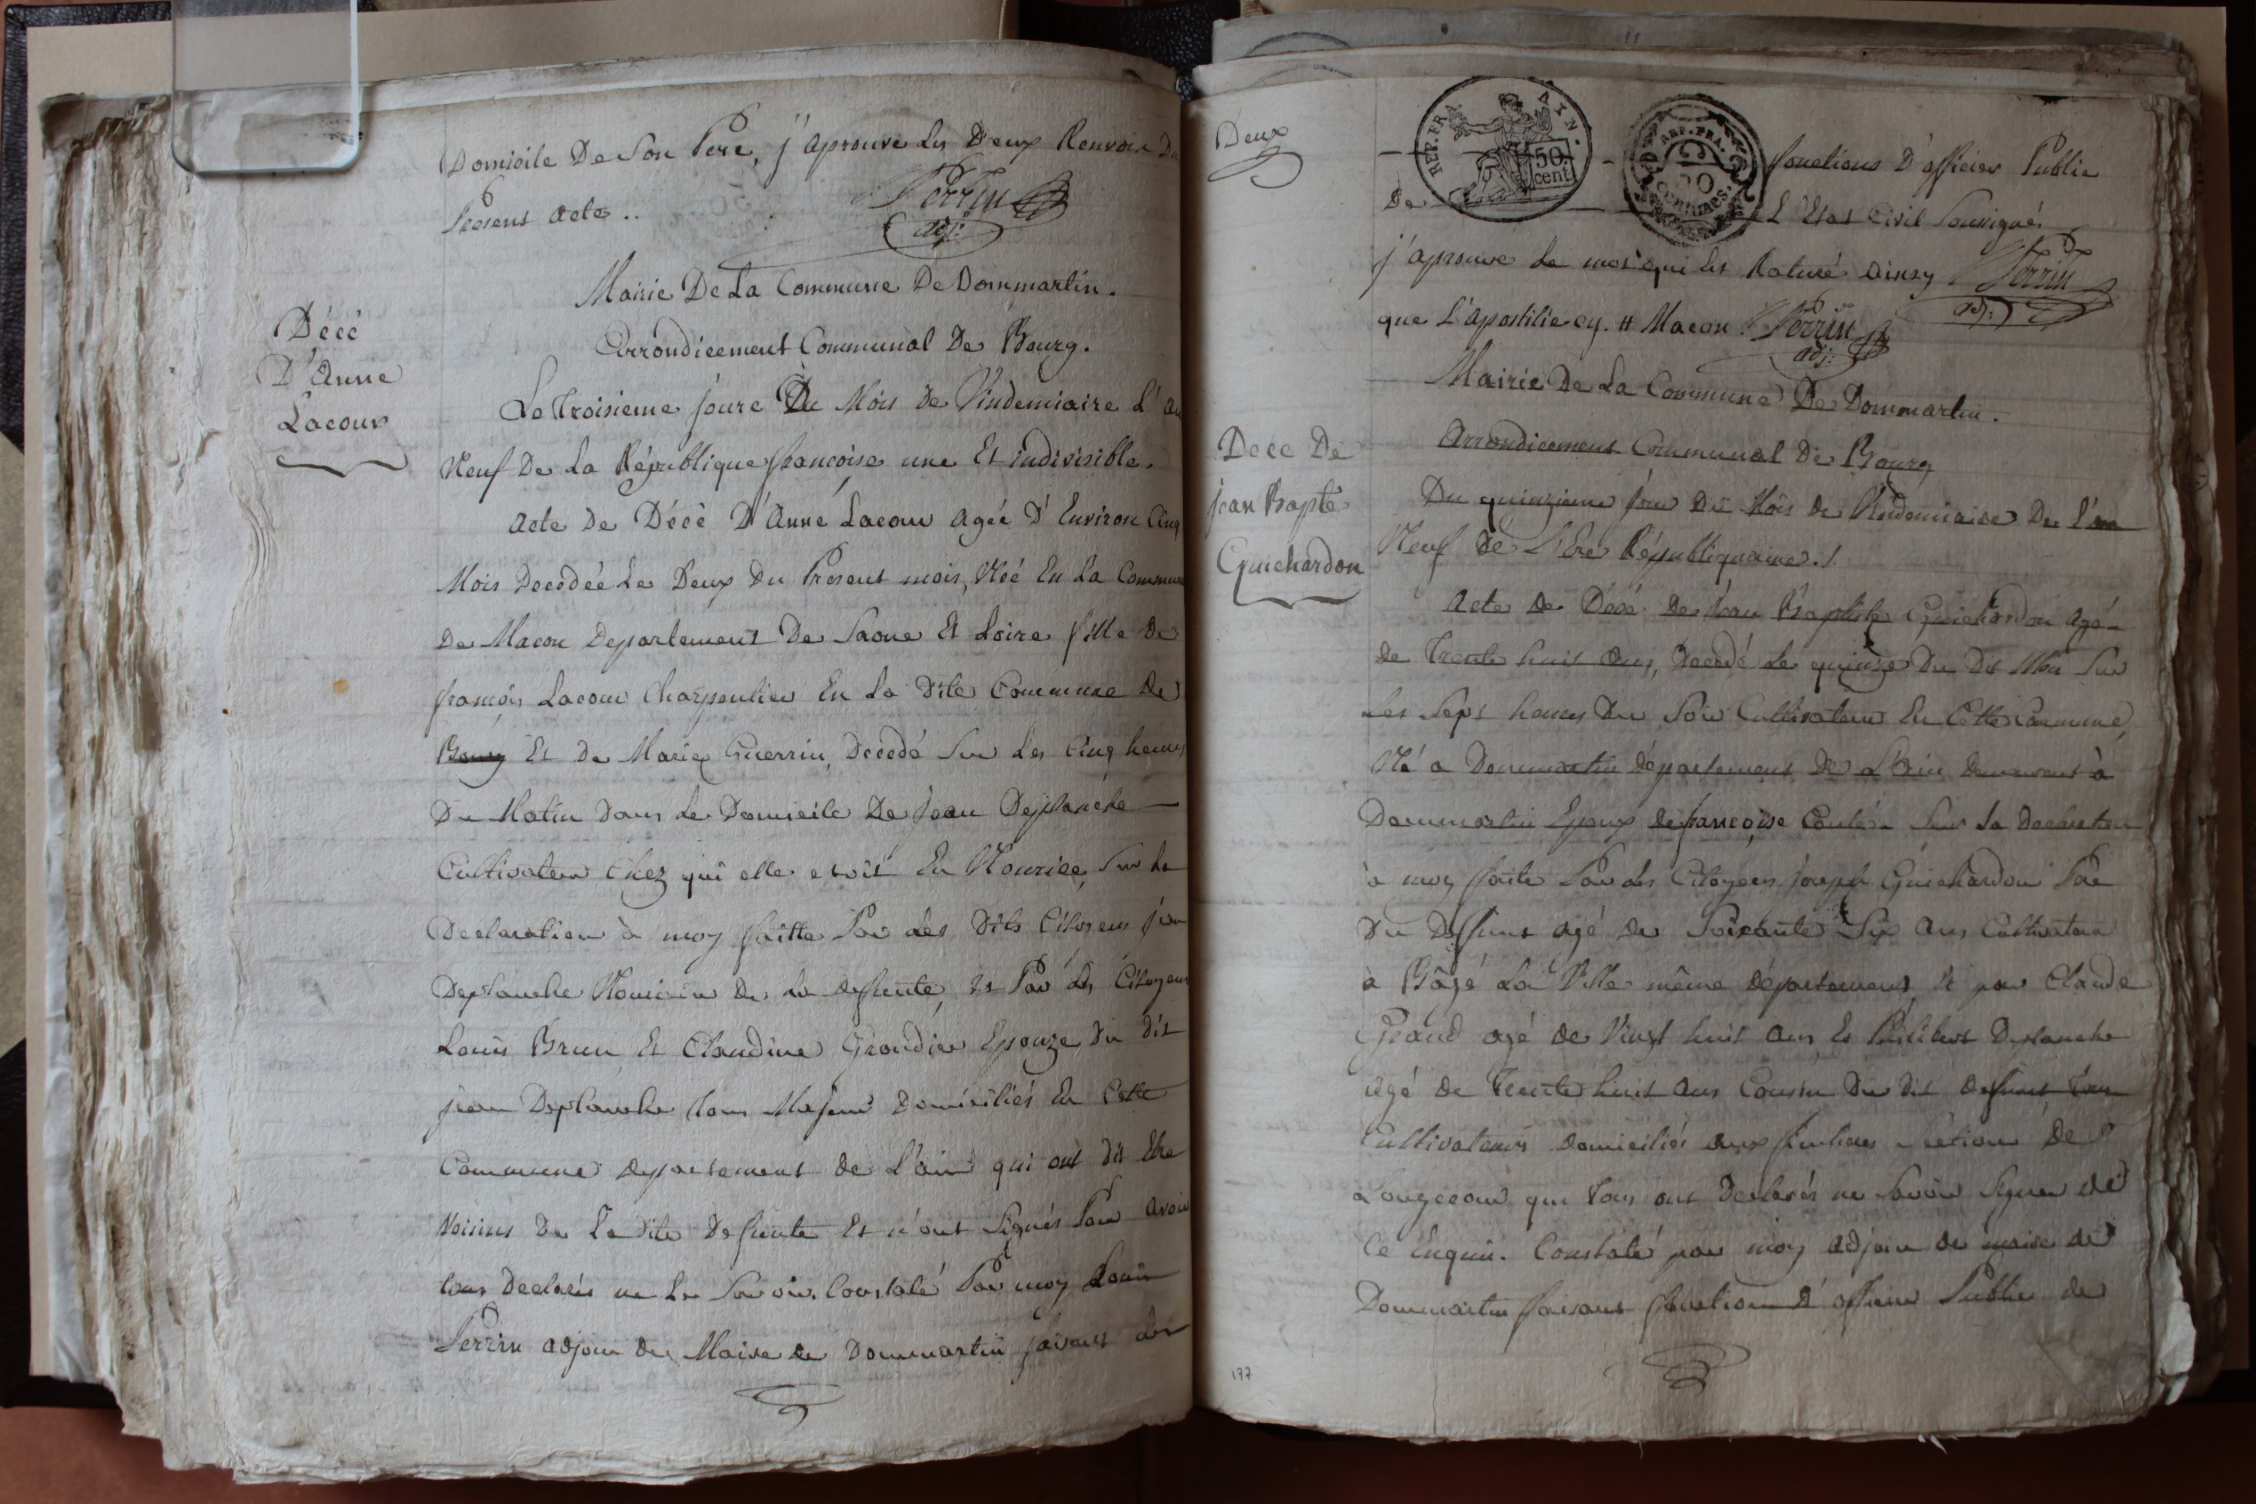 Domicile De Son Pere, j'aprouve Les Deux Renvoie Du
Present acte ..
Perrin
adj:
Mairie De La Commune De Dommartin.
Arrondicement Communal De Bourg.
Décé
D'Anne
Lacour
Le troisieme jour Du Mois de Vindemiaire L'an
Neuf De La République françoise une Et indivisible.
Acte De Décè D'Anne Lacour agée D'Environ Cinq
Mois Decedée Le Deux Du Present mois, Née En La Commune
De Macon Departement De Saone Et Loire fille De
françois Lacour Charpentier En La Dite Commune De
Bourg Et De Marie Guerrin, Decedé Sur Les Cinq heures
Du Matin Dans Le Domicile De Jean Deplanche
Cultivateur Chez qui elle etoit En Nourice, Sur La
Declaration à moy faitte Par Les Dits Citoyens jean
Deplanche Nouricier De La deffunte, Et Par Les Citoyens
Louis Brun Et Claudine Grandier Epouze Du dit
jean Deplanche tous Majeurs Domiciliés En Cette
Commune departement de L'ain qui ont dit Etre
Voisins De La dite Defunte Et n'ont Signés Pour avoir
tous Declarés ne Le Savoir. Constaté Par moy Louis
Perrin adjoin du Maire de Dommartin faisant Les
Deux
REP. FRA
AYN.
50
cent
REP. FRA.
50
CENTIMES.
fonctions D'officier Public
De L'Etat Civil Sousigné.
j'aprouve Le mot qui Est Raturé Dinsy Perrin
adj:
que L'apostilie cy. # Macon. Perrin
adj:
Mairie De La Commune De Dommartin.
Arrondicement Communal De Bourg
Dece De
jean Bapte
Guichardon
Du quinzieme jour Du Mois De Vindemiaire De l'an
Neuf De L'Ere Républiquaine./.
Acte De Décé De jean Baptiste Guichardon Agé
de Trente huit ans, Decedé Le quinze Du Dit Mois Sur
Les Sept heures Du Soir Cultivateur En Cette Commune,
Né a Dommartin département De L'Ain demeurant à
Dommartin Epoux de françoise Sur La Declaration
à moy faite Par Les Citoyens joseph Guichardon Pere
Du Deffunt agé De Soixante Six Ans Cultivateur
à Bâgé La Ville même département, Et par Claude
Grand agé De Vingt huit Ans Et Philibert Deplanche
agé de Trente huit ans Cousin Du dit defunt tous
Cultivateurs domiciliés section De
qui tous ont Declarés ne Savoir Signer de
Ce Enquis. Constaté par moy adjoin de maire de
Dommartin faisant fonction D'officier Public de
177